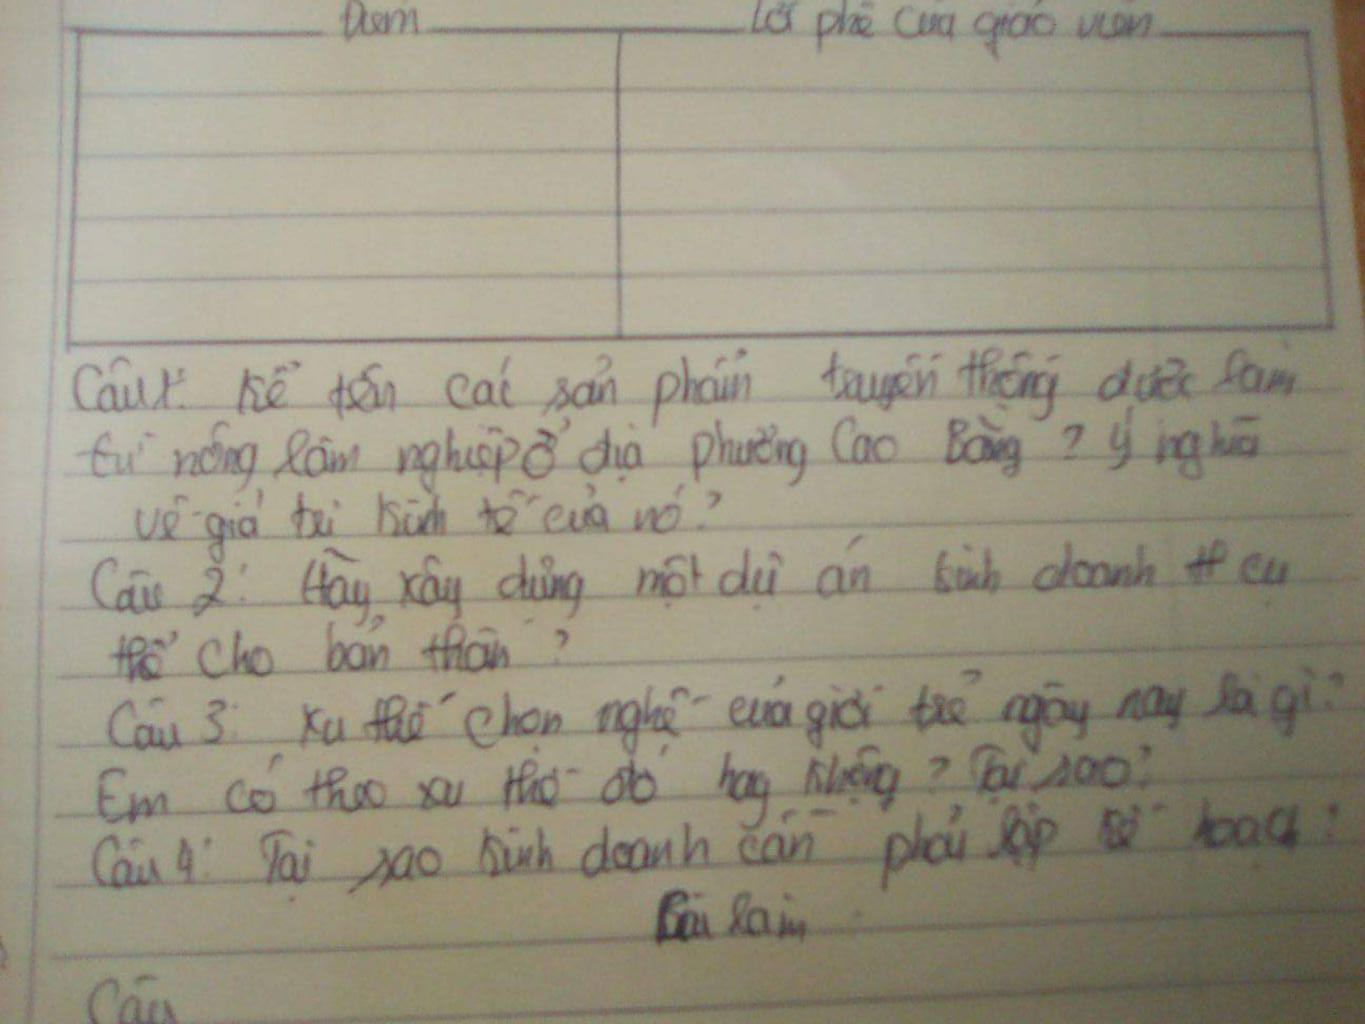 Điểm Lời phê của giáo viên
Câu 1: Kể tên các sản phẩm truyền thống được làm
từ nông lâm nghiệp ở địa phương Cao Bằng ? Ý nghĩa
về giá trị kinh tế của nó ?
Câu 2: Hãy xây dựng một dự án kinh doanh cụ
thể cho bản thân ?
Câu 3: Xu thế chọn nghề của giới trẻ ngày nay là gì ?
Em có theo xu thế đó hay không ? Tại sao ?
Câu 4: Tại sao kinh doanh cần phải lập kế hoạch ?
Bài làm
Câu